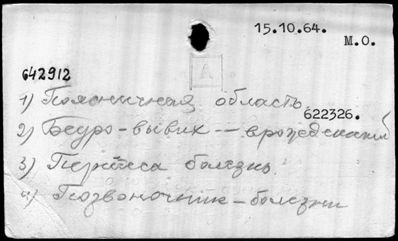 15.10.64.
М.О.
А
642912
1) Поясничная область
622326.
2) Бедро - вывих - врожденный
3) Пертеса болезнь
4) Позвоночник - болезни